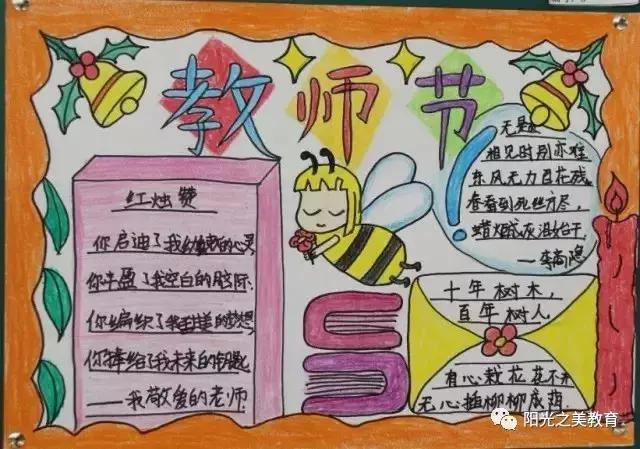 教师节
红烛赞
你启迪了我幼稚的心灵
你丰盈了我空白的脑际
你编织了我的梦想
你捧给了我未来的钥匙
——我敬爱的老师.
无题
相见时别亦难
东风无力百花残.
春看到死丝方尽,
蜡炬成灰泪始干.
——李商隐
十年树木,
百年树人
有心栽花花不开
无心插柳柳成荫.
阳光之美教育